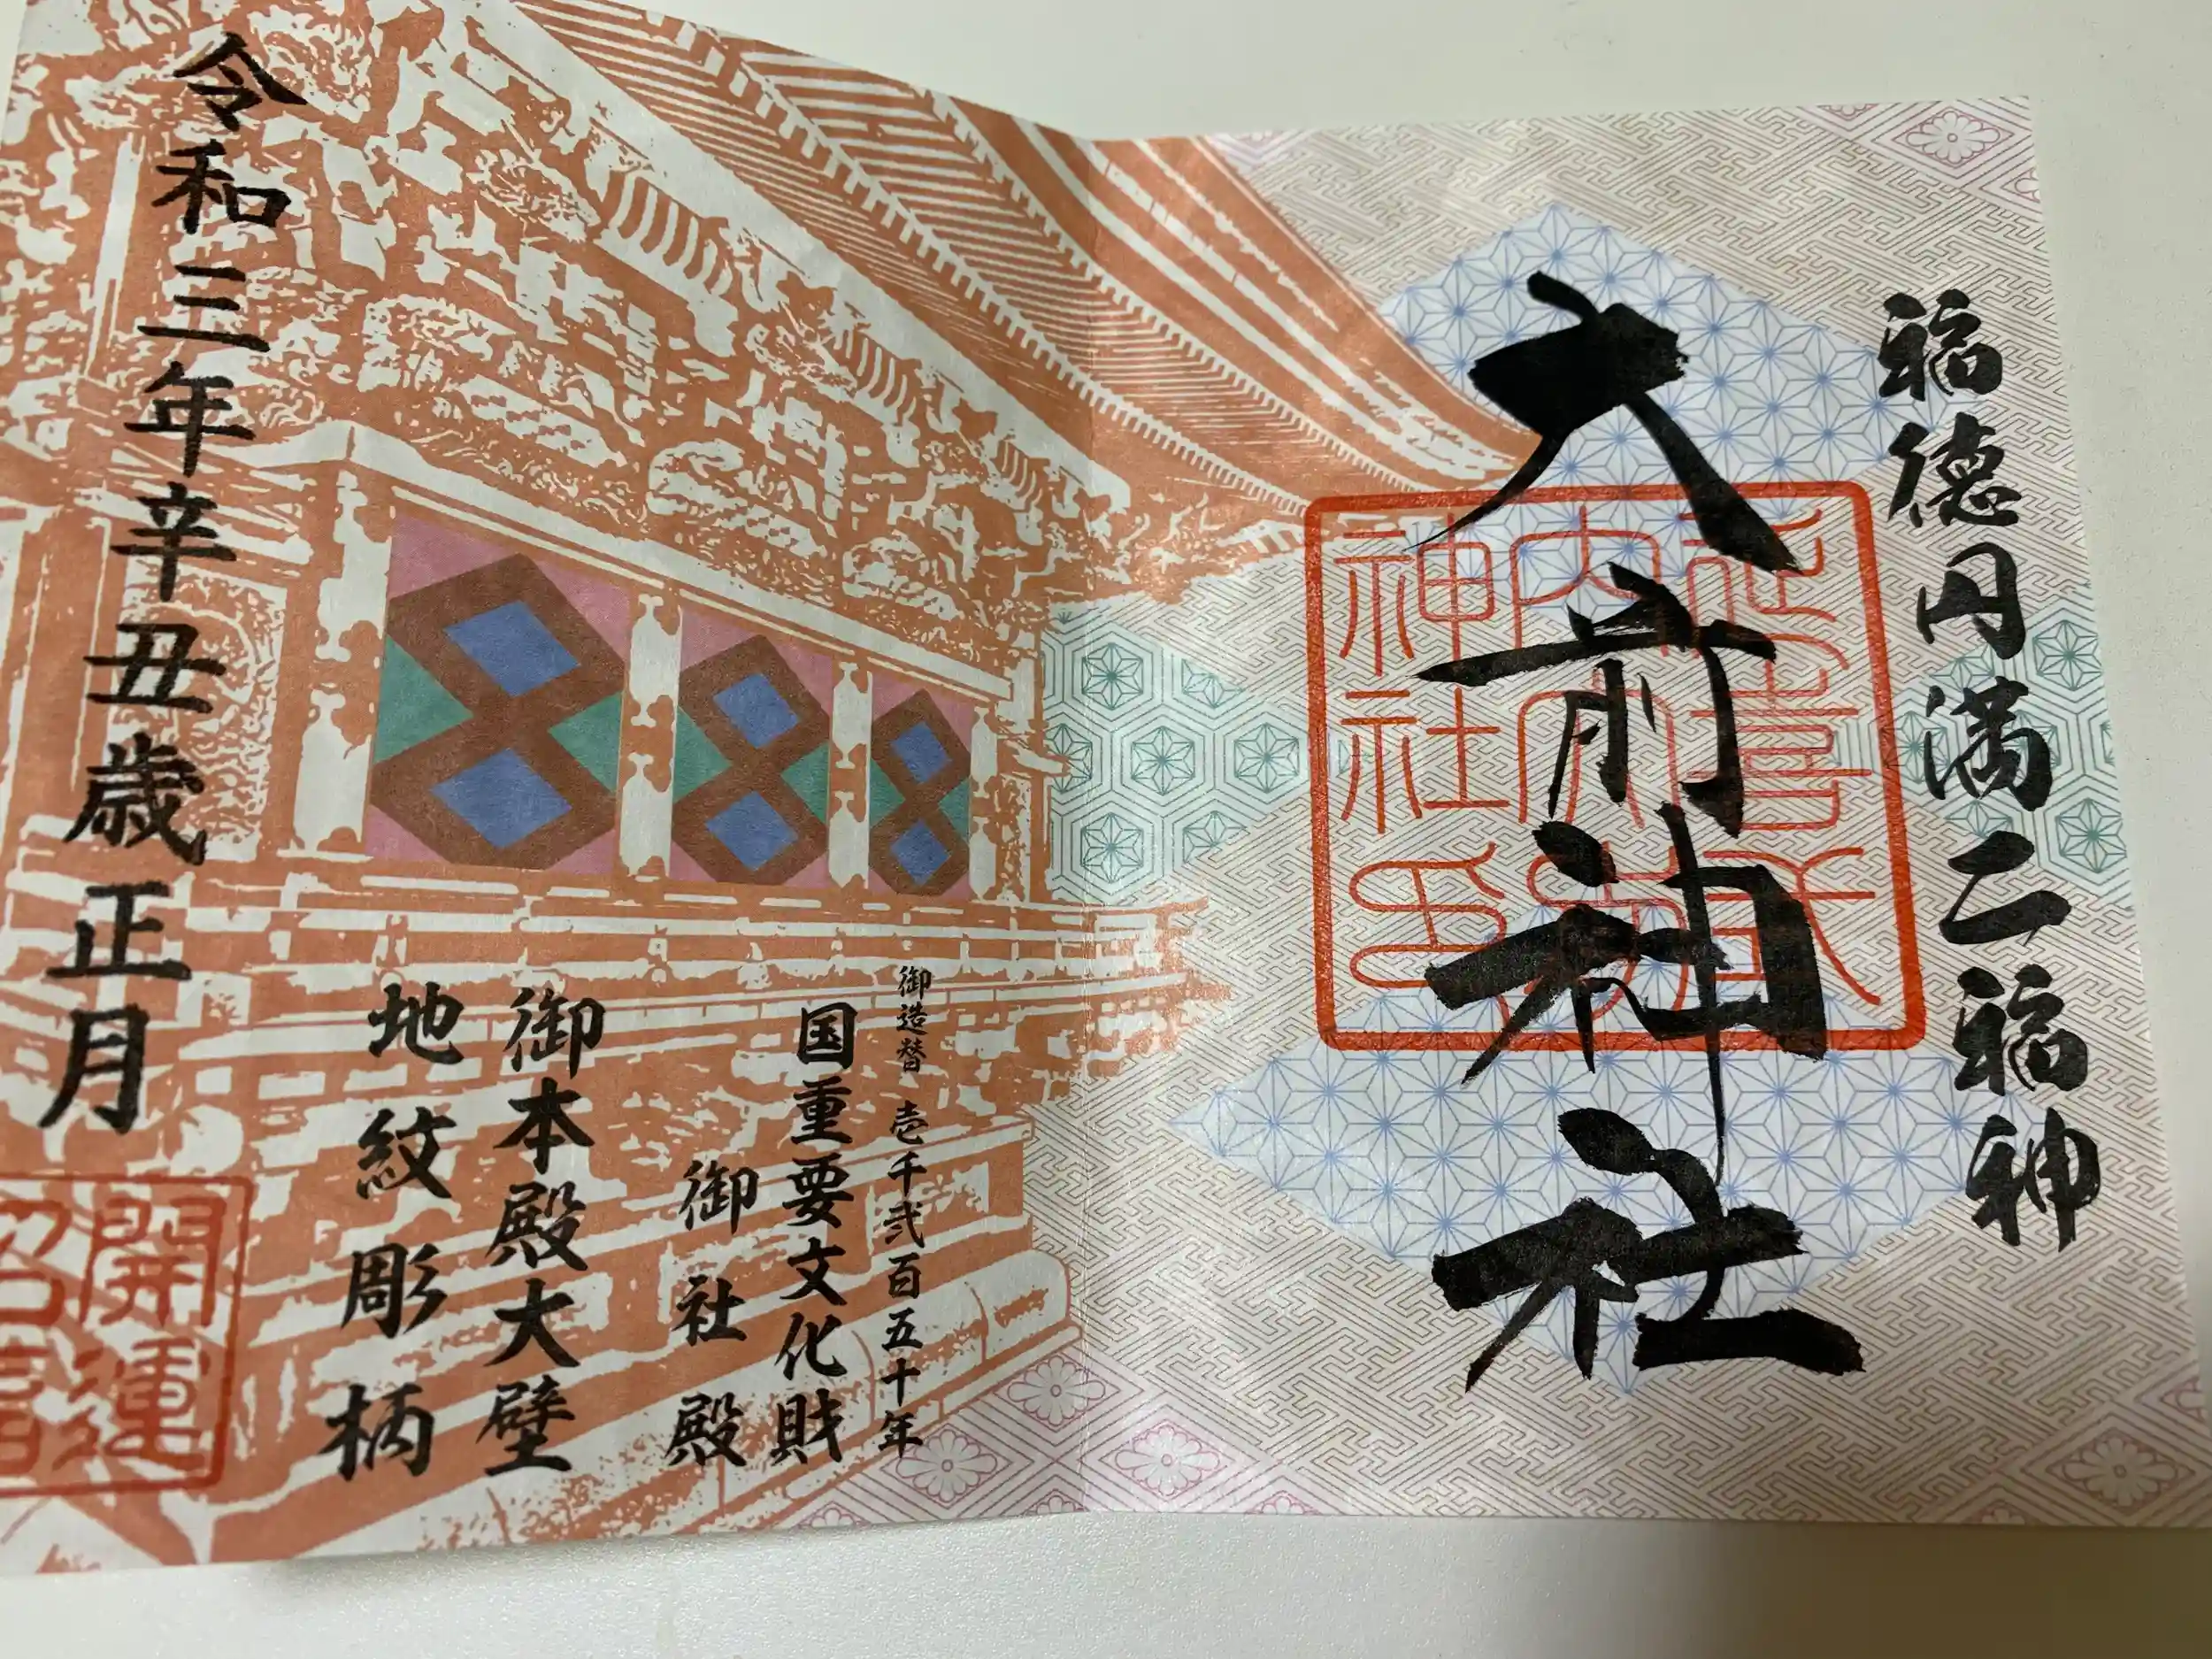 福徳円満二福神
大前神社
延喜式
内大前
神社印
御造替 壱千弐百五十年
国重要文化財
御社殿
御本殿大壁
地紋彫柄
令和三年辛丑歳正月
開運
招福